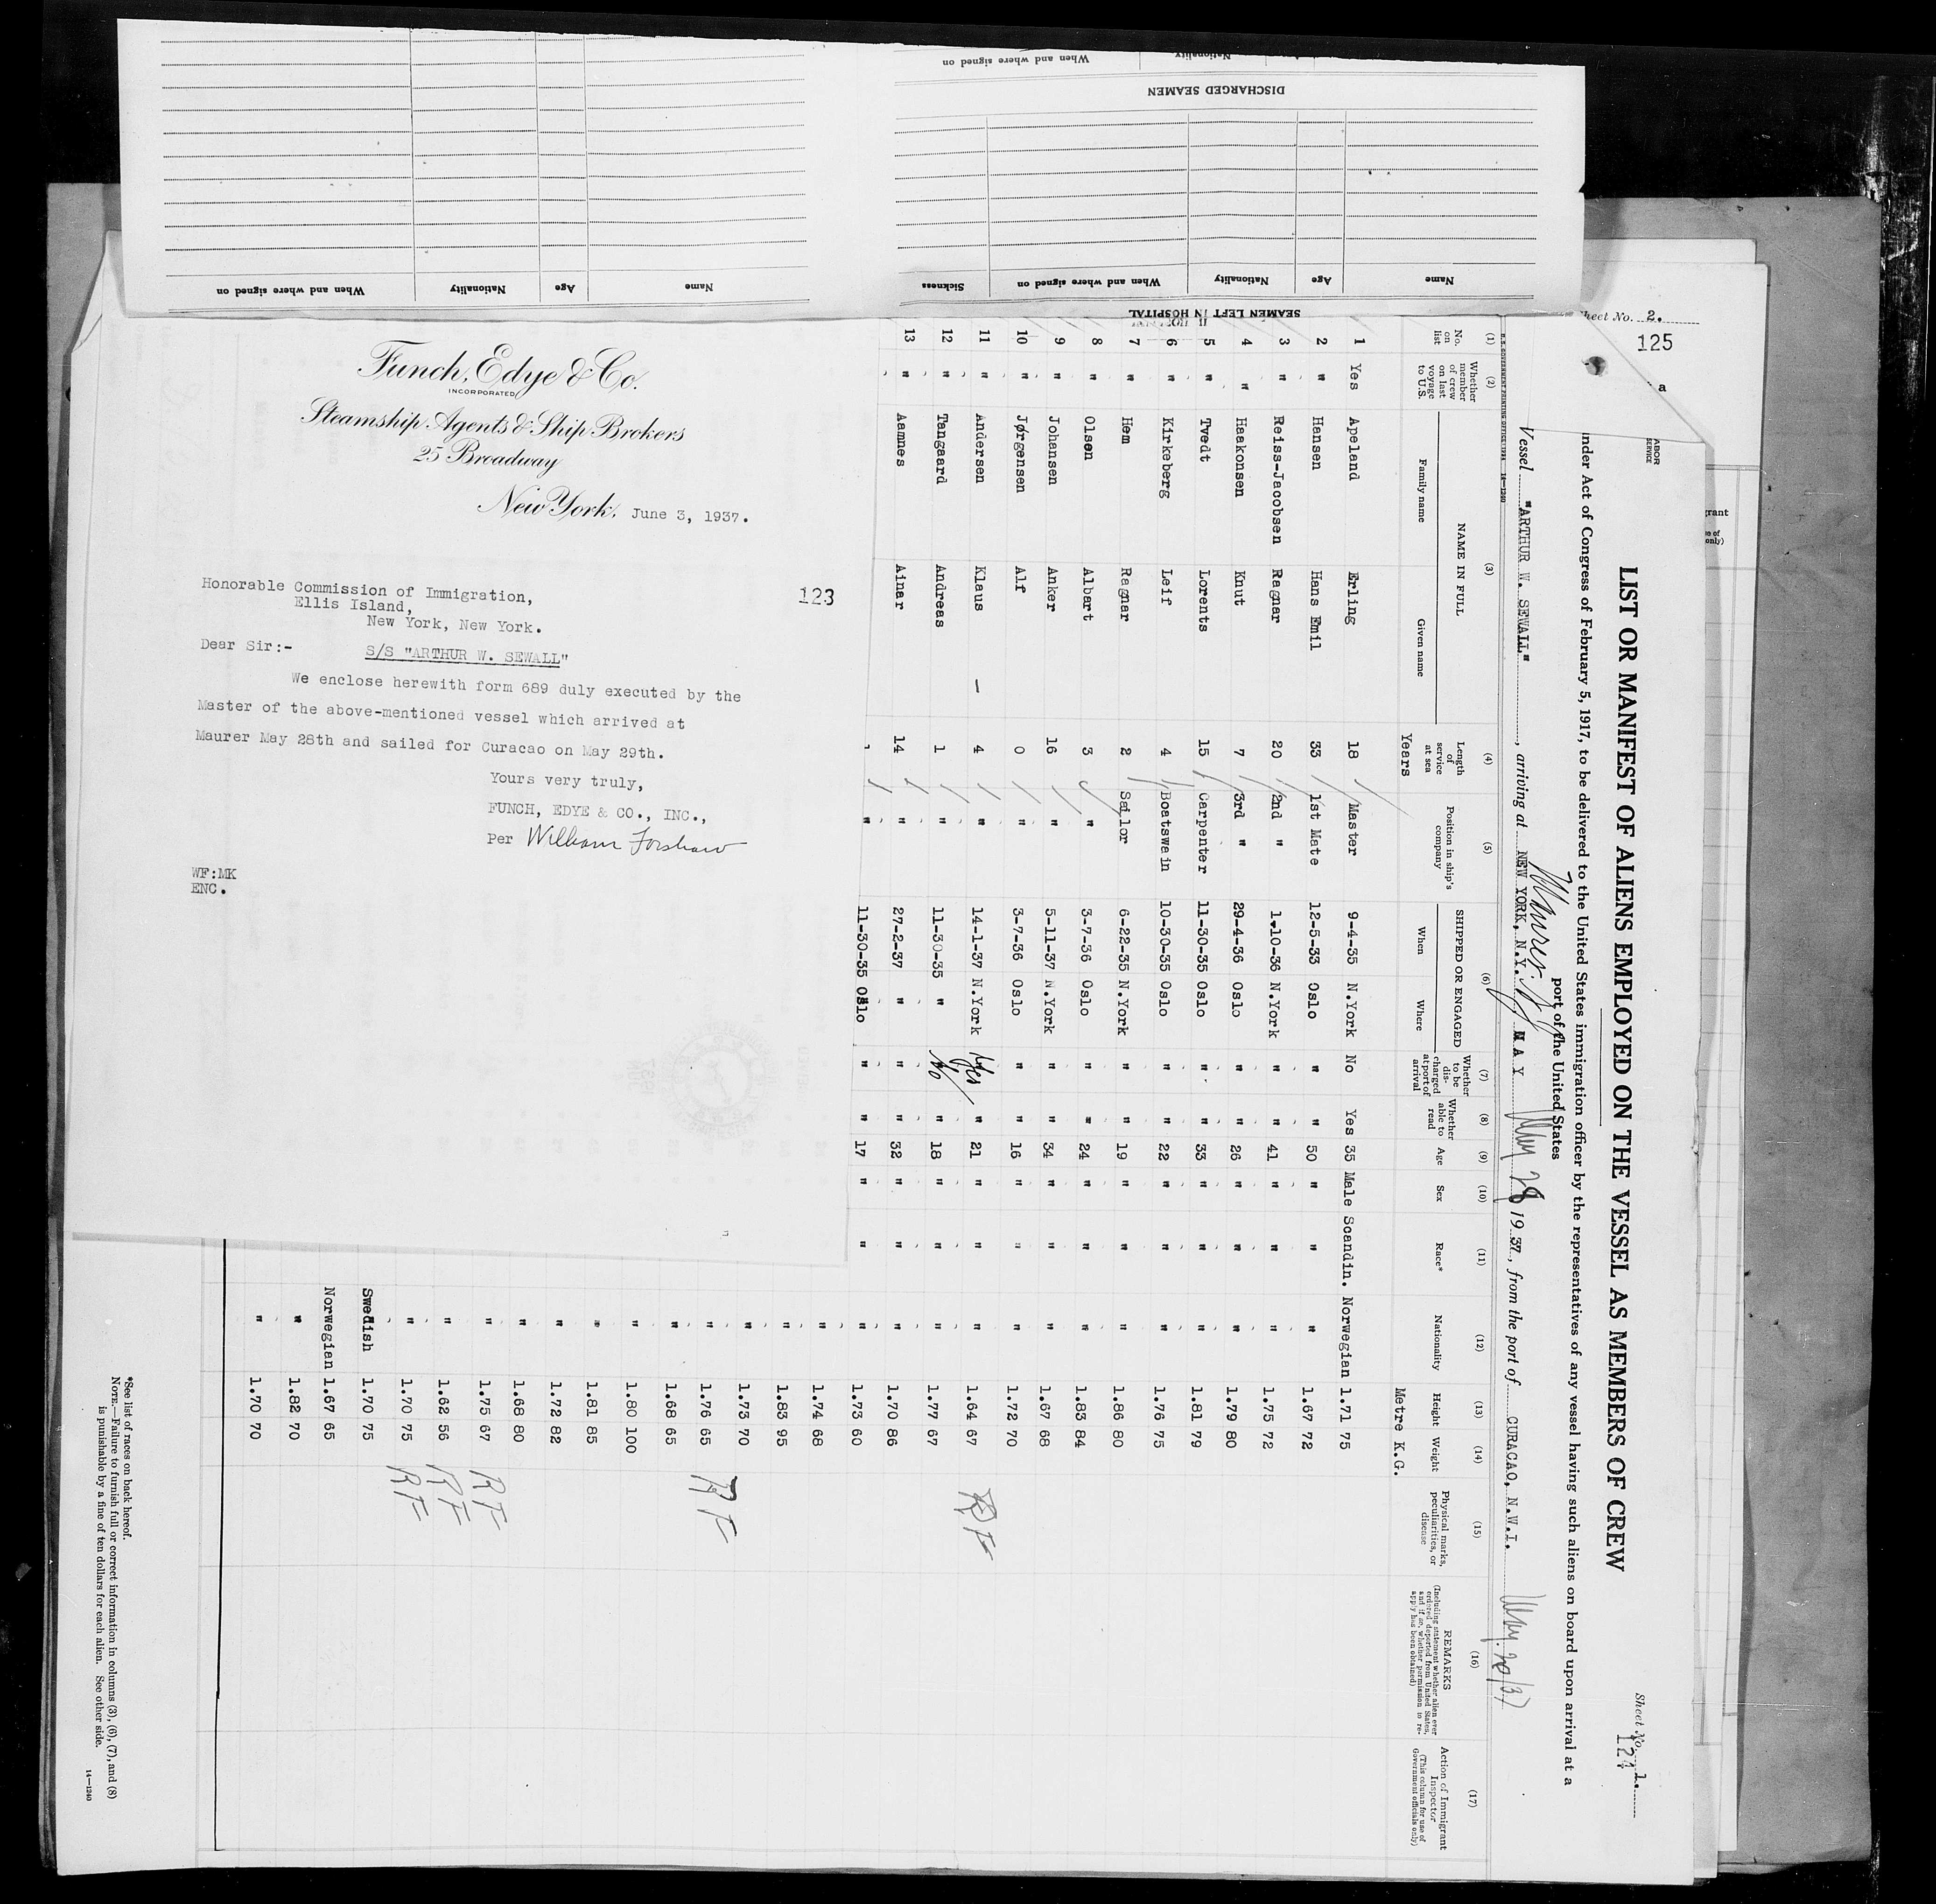 When and where signed on
Nationality
DISCHARGED SEAMEN
Name
Age
Nationality
When and where signed on
Sickness
Name
Age
Nationality
When and where signed on
SEAMEN LEFT IN HOSPITAL
Funch, Edye & Co.
INCORPORATED
Steamship Agents & Ship Brokers
25 Broadway
New York. June 3, 1937.
123
Honorable Commission of Immigration,
Ellis Island,
New York, New York.
Dear Sir:-
S/S "ARTHUR W. SEWALL"
We enclose herewith form 689 duly executed by the
Master of the above-mentioned vessel which arrived at
Maurer May 28th and sailed for Curacao on May 29th.
Yours very truly,
FUNCH, EDYE & CO., INC.,
Per William Forshaw
WF:MK
ENC.
Sheet No. 2.
125
a
Sheet No. 1.
124
LIST OR MANIFEST OF ALIENS EMPLOYED ON THE VESSEL AS MEMBERS OF CREW
under Act of Congress of February 5, 1917, to be delivered to the United States immigration officer by the representatives of any vessel having such aliens on board upon arrival at a
port of the United States
Vessel "ARTHUR W. SEWALL", arriving at NEW YORK, N.Y. MAY May 28 1937, from the port of CURACAO, N.W.I.
(1) (2) (3) (4) (5) (6) (7) (8) (9) (10) (11) (12) (13) (14) (15) (16) (17)
No. on list
Whether member of crew on last voyage to U.S.
NAME IN FULL
Family name
Given name
Length of service at sea
Years
Position in ship's company
SHIPPED OR ENGAGED
When
Where
Whether to be discharged at port of arrival
Whether able to read
Age
Sex
Race*
Nationality
Height
Metre
Weight
K.G.
Physical marks, peculiarities, or disease
REMARKS
(Including statement whether alien ever ordered deported from United States, and if so, whether permission to reapply has been obtained)
Action of Immigrant Inspector
(This column for use of Government officials only)
1 Yes Apeland Erling 18 Master 9-4-35 N.York No Yes 35 Male Scandin. Norwegian 1.71 75
2 " Hansen Hans Emil 33 1st Mate 12-5-33 Oslo " " 50 " " " 1.67 72
3 " Reiss-Jacobsen Ragnar 20 2nd " 1-10-36 N.York " " 41 " " " 1.75 72
4 " Haakonsen Knut 7 3rd " 29-4-36 Oslo " " 26 " " " 1.79 80
5 " Tvedt Lorents 15 Carpenter 11-30-35 Oslo " " 33 " " " 1.81 79
6 " Kirkeberg Leif 4 Boatswain 10-30-35 Oslo " " 22 " " " 1.76 75
7 " Hem Ragnar 2 Sailor 6-22-35 N.York " " 19 " " " 1.86 80
8 " Olsen Albart 3 " 3-7-36 Oslo " " 24 " " " 1.83 84
9 " Johansen Anker 16 " 5-11-37 N.York " " 34 " " " 1.67 68
10 " Jørgensen Alf 0 " 3-7-36 Oslo " " 16 " " " 1.72 70
11 " Andersen Klaus 4 " 14-1-37 N.York Yes " 21 " " " 1.64 67 RF
12 " Tangaard Andreas 1 " 11-30-35 " No " 18 " " " 1.77 67
13 " Aamnes Ainar 14 " 27-2-37 " " " 32 " " " 1.70 86
" 11-30-35 Oslo " " 17 " " " 1.73 60
" 1.74 68
" 1.83 95
" 1.73 70
" 1.76 65 RF
" 1.68 65
" 1.80 100
" 1.81 85
" 1.72 82
" 1.68 80
" 1.75 67 RF
" 1.62 56 RF
" 1.70 75 RF
Swedish 1.70 75
Norwegian 1.67 65
" 1.82 70
" 1.70 70
*See list of races on back hereof.
NOTE.—Failure to furnish full or correct information in columns (3), (6), (7), and (8)
is punishable by a fine of ten dollars for each alien. See other side.
14—1240